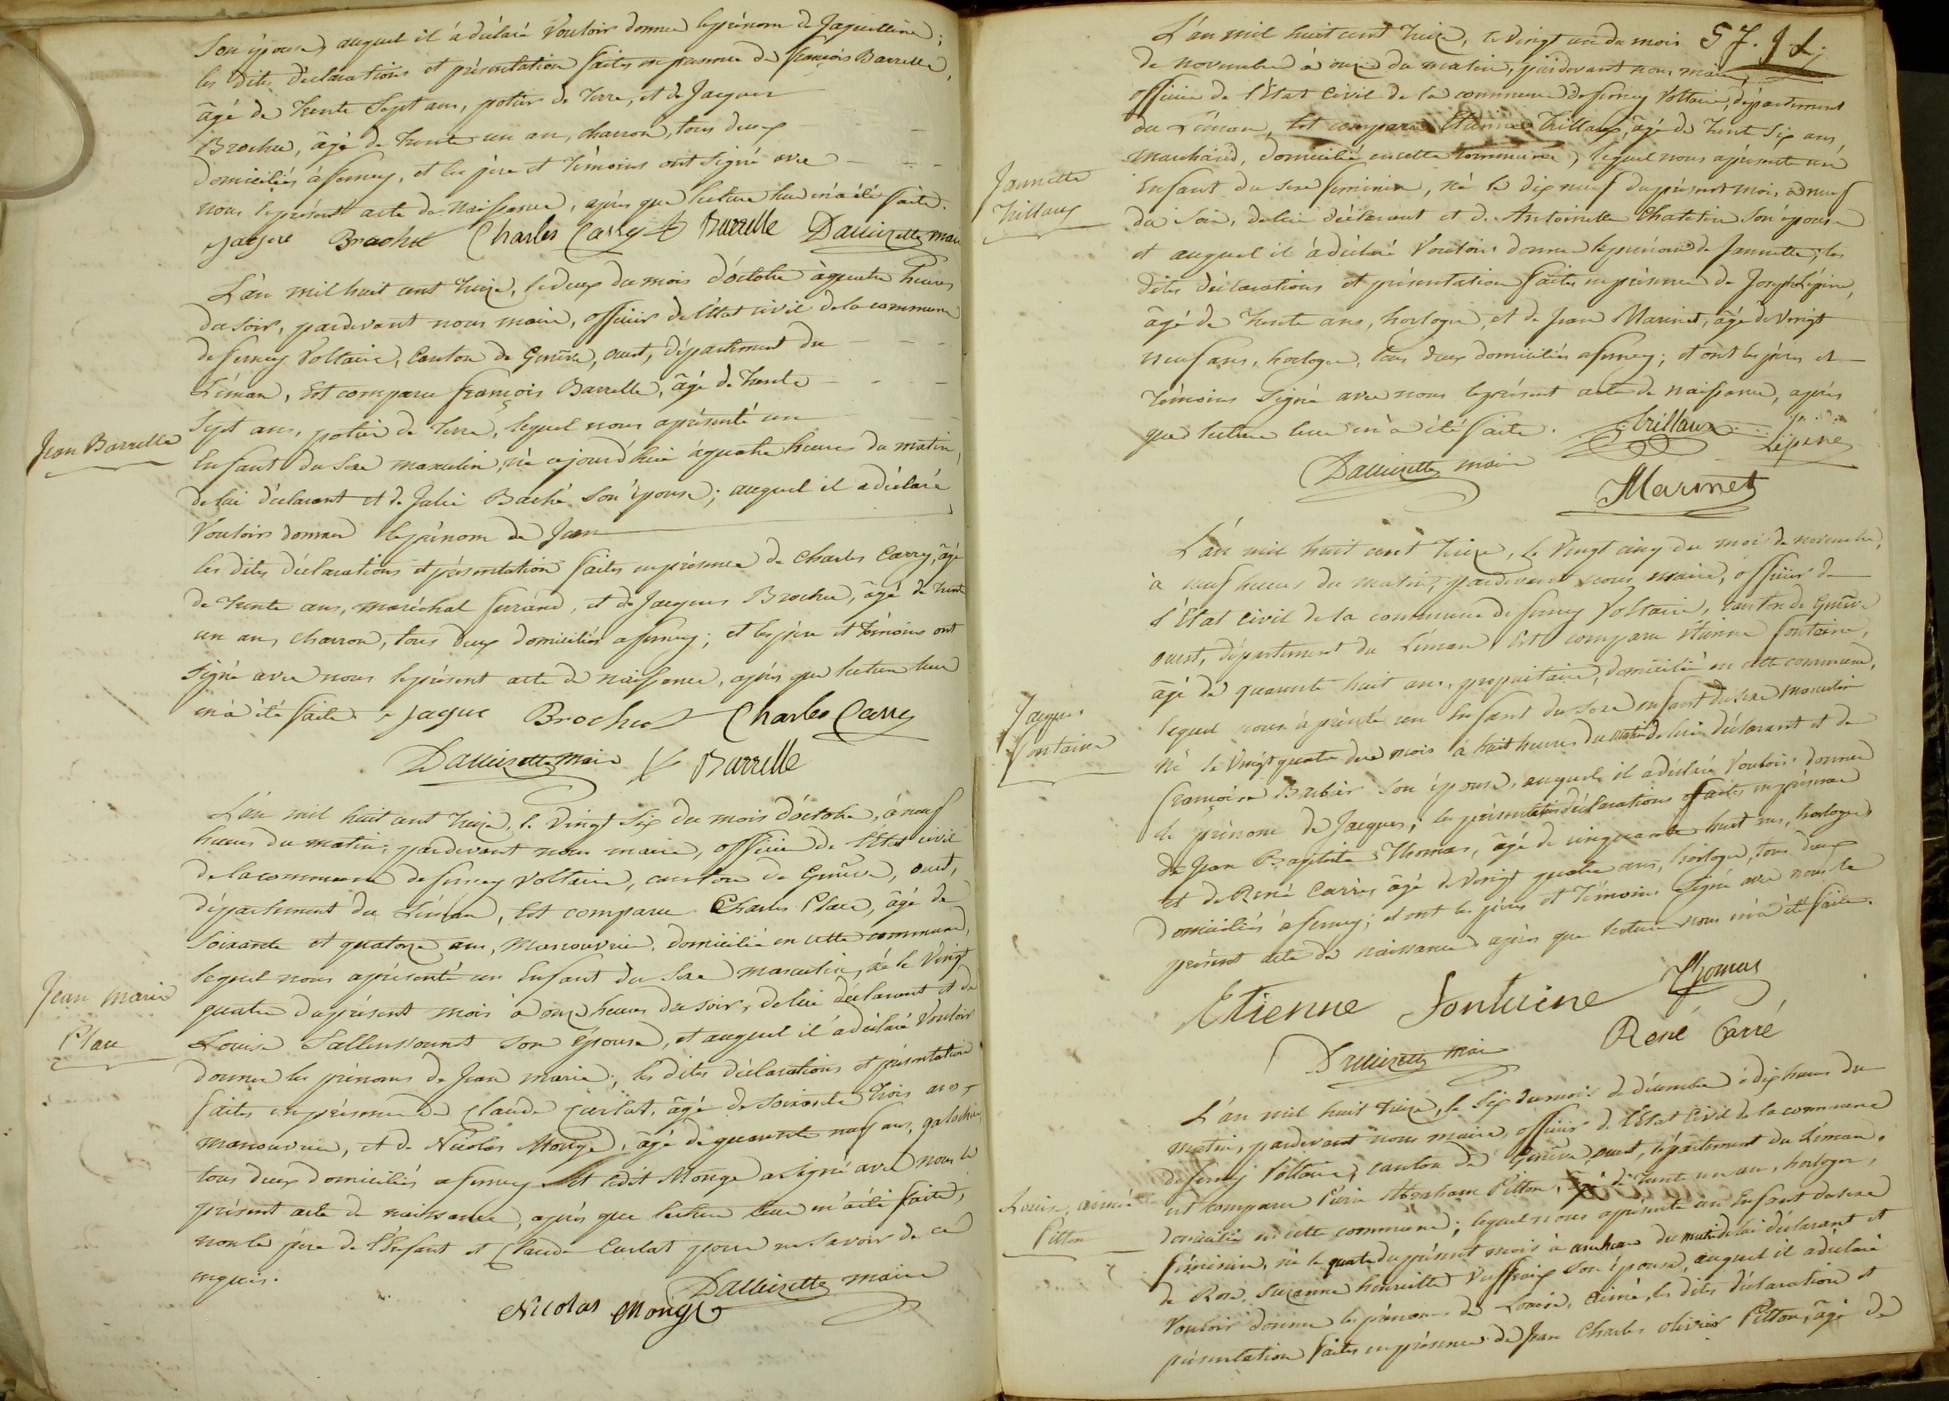 Son épouse, auquel il a déclaré Vouloir donner le prénom de Jaqueline;
les dites déclarations et présentation faites en présence de françois Barrelle,
âgé de trente Sept ans, potier de terre, et de Jacques
Brochu, âgé de trente un an, charron, tous deux
domiciliés à ferney, et les père et témoins ont signé avec
nous le présent acte de Naissance, après que lecture leur en a été faite.
Jaque Brochu Charles Carry Barrelle Dauizette maire
L'an mil huit cent treize, le deux du mois d'octobre à quatre heures
du soir, pardevant nous maire, officier de l'état civil de la commune
de ferney Voltaire, Canton de Genève, ouest, département du
Léman, Est comparu françois Barrelle, âgé de trente
Sept ans, potier de terre, lequel nous a présenté un
Jean Barrelle
Enfant du Sexe masculin, né cejourd'hui à quatre heures du matin,
de lui déclarant et de Julie Baché Son épouse; auquel il a déclaré
Vouloir donner le prénom de Jean
les dites déclarations et présentation faites en présence de Charles Carry, âgé
de trente ans, maréchal ferrand, et de Jacques Brochu, âgé de trente
un an, charron, tous deux domiciliés a ferney; et les père et témoins ont
Signé avec nous le présent acte de naissance, après que lecture leur
en a été faite. Jaque Brochu Charles Carry
Dauizette maire Barrelle
L'an mil huit cent treize, le Vingt Six du mois d'octobre, à neuf
heures du matin, pardevant nous maire, officier de l'état civil
de la commune de ferney Voltaire, canton de Genève, ouest,
département du Léman, Est comparu Charles Place, âgé de
Soixante et quatorze ans, Manouvrier, domicilié en cette commune,
lequel nous a présenté un Enfant du Sexe masculin, né le Vingt
Jean marie
Place
quatre du présent mois à onze heures du soir, de lui déclarant et de
Louise Son épouse, et auquel il a déclaré Vouloir
donner les prénoms de Jean marie; les dites déclarations et présentation
faites en présence de Claude Curlat, âgé de Soixante trois ans,
manouvrier, et de Nicolas Monge, âgé de quarante neuf ans,
tous deux domiciliés a ferney et ledit Monge a signé avec nous le
présent acte de naissance, après que lecture leur en a été faite,
non le père de l'Enfant et Claude Curlat pour ne Savoir de ce
enquis.
Dauizette maire
Nicolas Monge
57. J. L.
L'an mil huit cent treize, le Vingt un du mois
de novembre à onze du matin, pardevant nous maire,
officier de l'État Civil de la commune de ferney Voltaire, département
du Léman, Est comparu Etienne Trillaux, âgé de trente Six ans,
marchand, domicilié en cette commune, lequel nous a présenté un
Jannette
Trillaux
Enfant du Sexe féminin, né le dix neuf du présent mois, à neuf
du Soir, de lui déclarant et de Antoinette Chatelin Son épouse
et auquel il a déclaré Vouloir donner le prénom de Jannette; les
dites déclarations et présentation faites en présence de Joseph Lépine,
âgé de trente ans, horloger, et de Jean Marinet, âgé de Vingt
neuf ans, horloger, tous deux domiciliés a ferney; et ont les pères et
témoins Signé avec nous le présent acte de naissance, après
que lecture leur en a été faite. Trillaux Lépine
Dauizette maire Marinet
L'an mil huit cent treize, le Vingt cinq du mois de novembre,
à neuf heures du matin, pardevant nous, maire, officier de
l'État Civil de la commune de ferney Voltaire, canton de Genève
ouest, département du Léman Est comparu Etienne fontaine,
âgé de quarante huit ans, propriétaire, domicilié en cette commune,
Jacques
fontaine
lequel nous a présenté un Enfant du Sexe Enfant du Sexe masculin
né le Vingt quatre du mois à huit heures du matin de lui déclarant et de
françoise Barbier Son épouse, auquel il a déclaré Vouloir donner
le prénom de Jacques; les présentation déclarations faites en présence
de Jean Baptiste Thomas, âgé de cinquante huit ans, horloger
et de René Carré âgé de Vingt quatre ans, horloger, tous deux
domiciliés à ferney; et ont les pères et témoins Signé avec nous le
présent acte de naissance après que lecture nous en a été faite.
Etienne fontaine Thomas
Dauizette maire René Carré
L'an mil huit treize, le Six du mois de décembre à dix heures du
matin, pardevant nous maire, officier de l'État Civil de la commune
de ferney Voltaire, canton de Genève, ouest, département du Léman.
est comparu Pierre Abraham Pitton, âgé de trente un an, horloger,
Louise, aimée
Pitton
domicilié en cette commune; lequel nous a présenté un Enfant du Sexe
féminin, né le quatre du présent mois à heures du matin de lui déclarant et
de Rose Suzanne henriette Son épouse, auquel il a déclaré
Vouloir donner les prénoms de Louise, aimée, les dites déclaration et
présentation faites en présence de Jean Charles olivier Pitton, âgé de